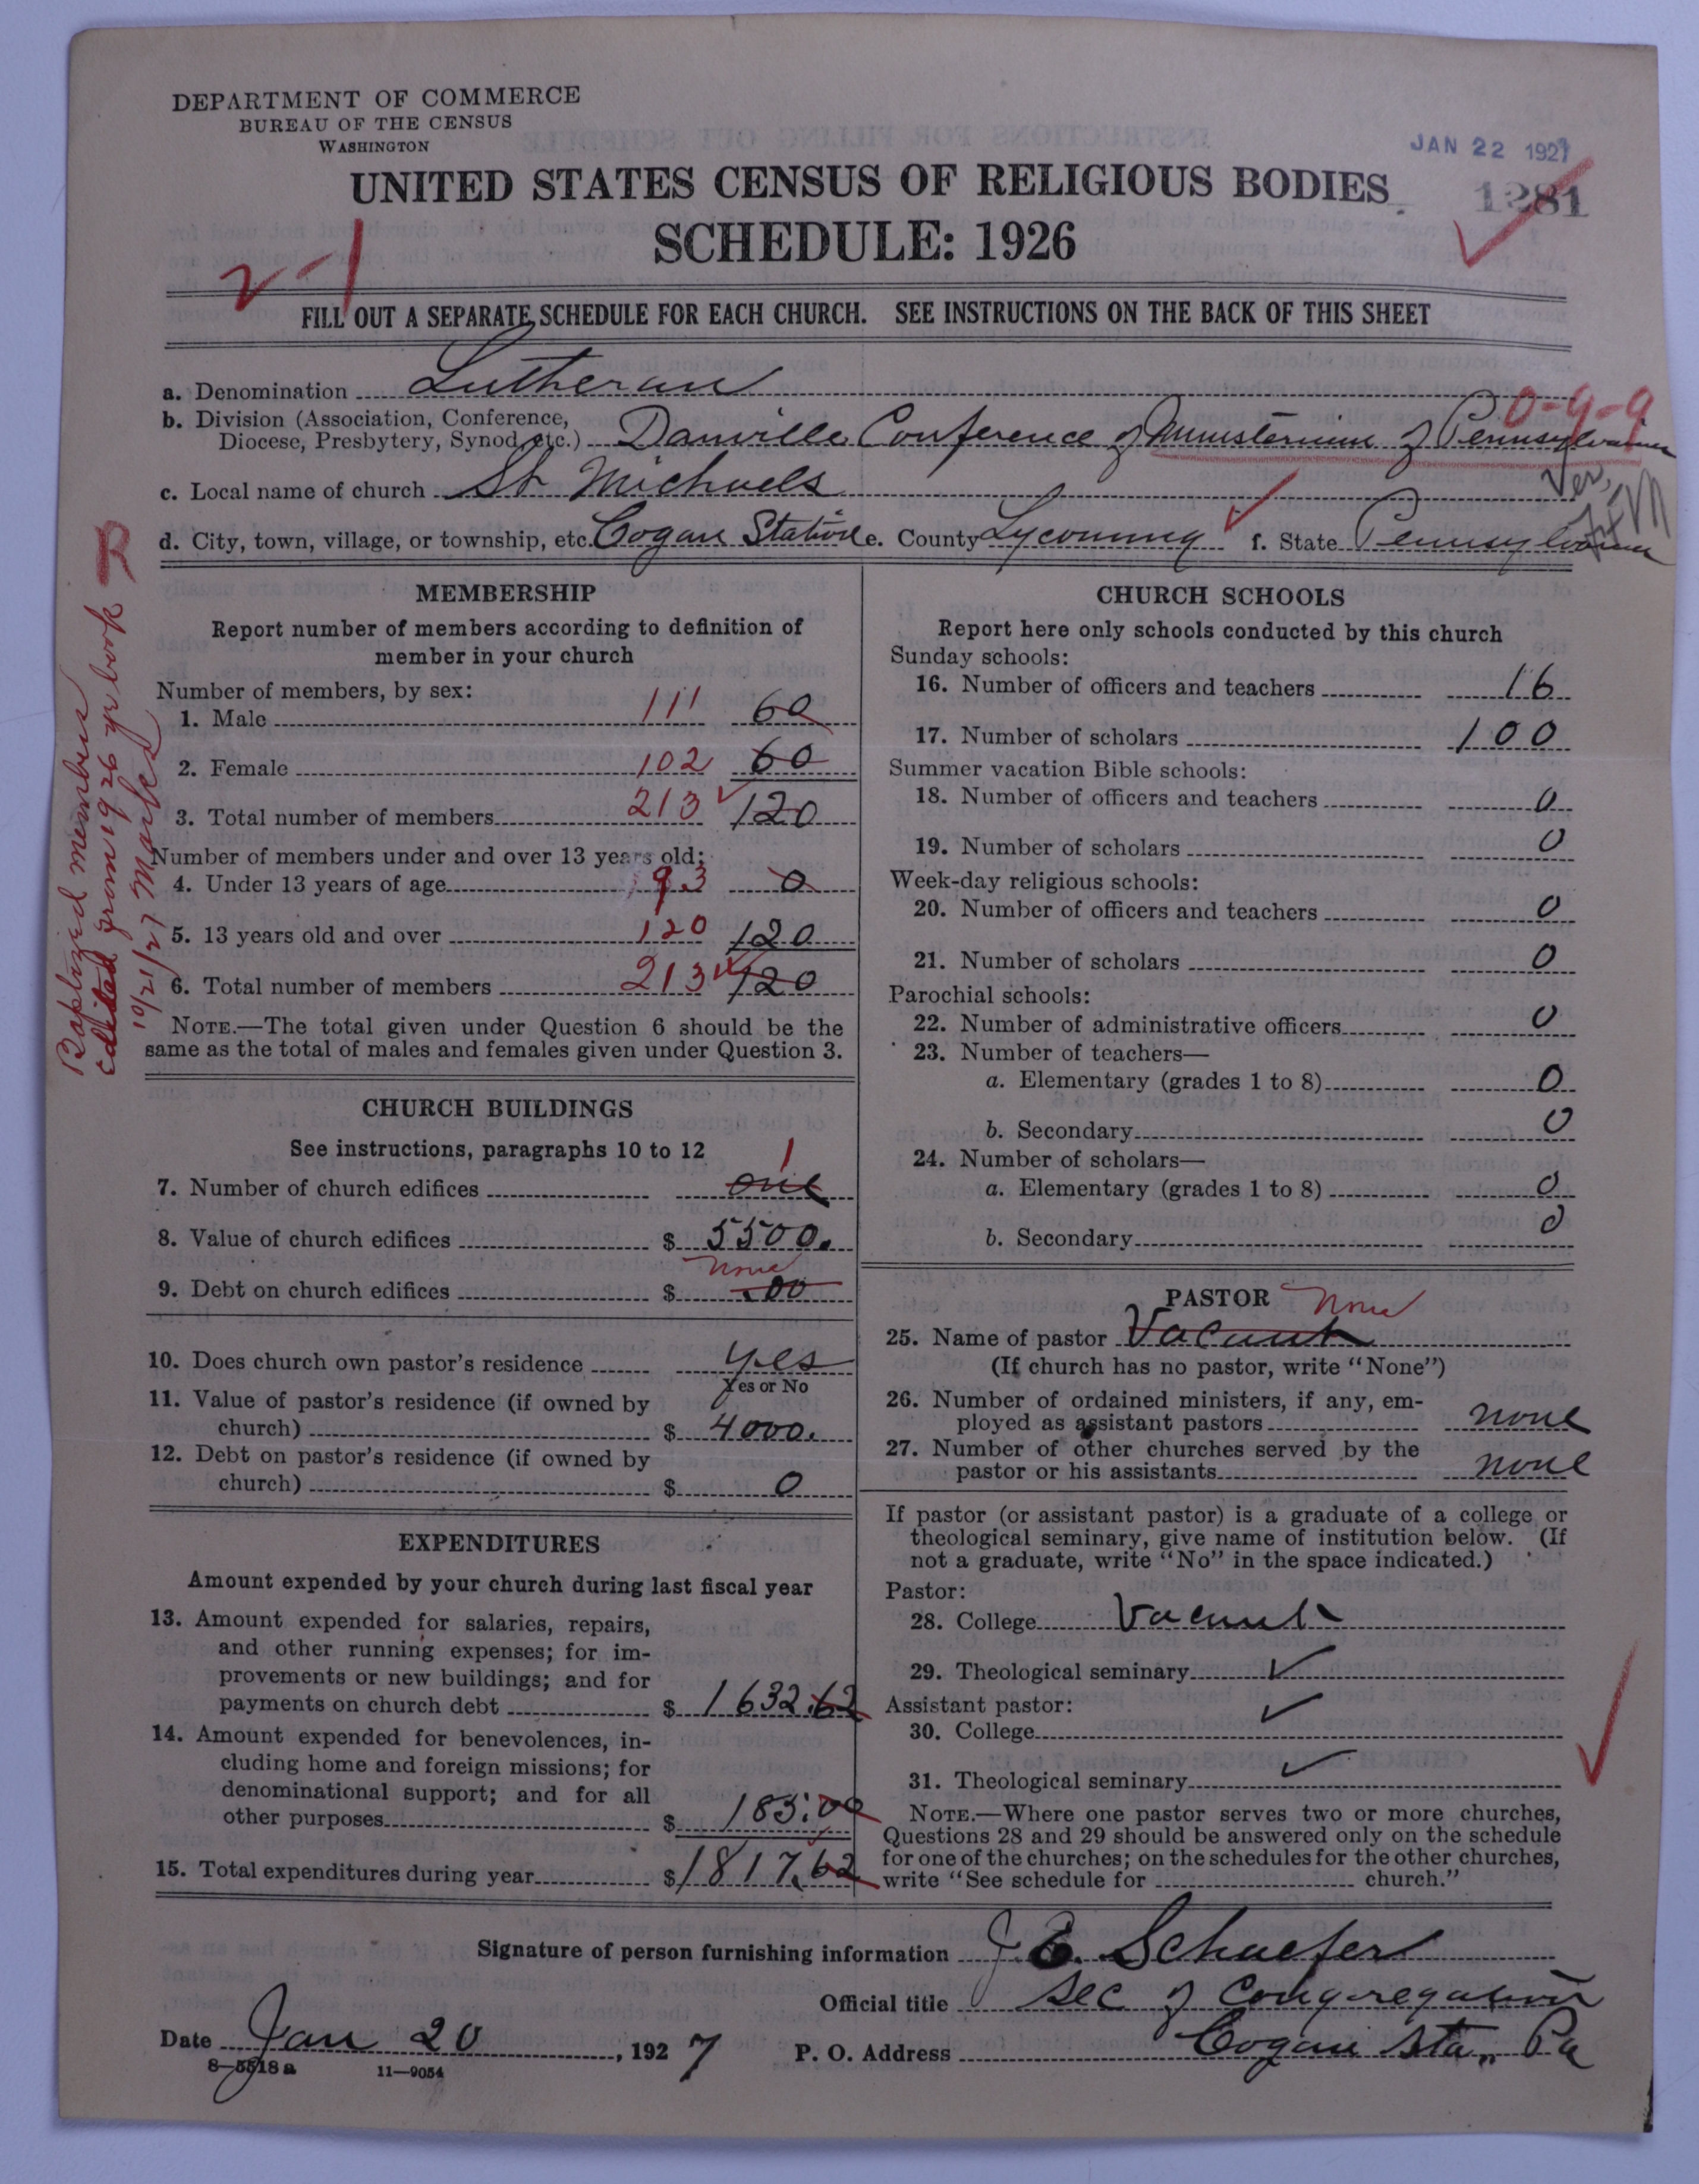 DEPARTMENT OF COMMERCE
BUREAU OF THE CENSUS
WASHINGTON
JAN 22 1927
UNITED STATES CENSUS OF RELIGIOUS BODIES
1281
SCHEDULE: 1926
2-1
FILL OUT A SEPARATE SCHEDULE FOR EACH CHURCH. SEE INSTRUCTIONS ON THE BACK OF THIS SHEET
a. Denomination Lutheran
0-9-9
b. Division (Association, Conference,
Diocese, Presbytery, Synod, etc.) Danville Conference of Ministerium of Pennsylvania
c. Local name of church St Michaels
Ver.
d. City, town, village, or township, etc. Cogan Station e. County Lycoming f. State Pennsylvania
Baptized members
edited from 1926 yr book
10/21/27
MEMBERSHIP
Report number of members according to definition of
member in your church
Number of members, by sex:
1. Male 111 60
2. Female 102 60
3. Total number of members 213 120
Number of members under and over 13 years old:
4. Under 13 years of age 93 0
5. 13 years old and over 120 120
6. Total number of members 213 120
NOTE.—The total given under Question 6 should be the
same as the total of males and females given under Question 3.
CHURCH BUILDINGS
See instructions, paragraphs 10 to 12
1
7. Number of church edifices one
8. Value of church edifices $ 5500.
none
9. Debt on church edifices $ .00
10. Does church own pastor's residence yes
Yes or No
11. Value of pastor's residence (if owned by
church) $ 4000.
12. Debt on pastor's residence (if owned by
church) $ 0
EXPENDITURES
Amount expended by your church during last fiscal year
13. Amount expended for salaries, repairs,
and other running expenses; for im-
provements or new buildings; and for
payments on church debt $ 1632.62
14. Amount expended for benevolences, in-
cluding home and foreign missions; for
denominational support; and for all
other purposes $ 185.00
15. Total expenditures during year $ 1817.62
CHURCH SCHOOLS
Report here only schools conducted by this church
Sunday schools:
16. Number of officers and teachers 16
17. Number of scholars 100
Summer vacation Bible schools:
18. Number of officers and teachers 0
19. Number of scholars 0
Week-day religious schools:
20. Number of officers and teachers 0
21. Number of scholars 0
Parochial schools:
22. Number of administrative officers 0
23. Number of teachers—
a. Elementary (grades 1 to 8) 0
b. Secondary 0
24. Number of scholars—
a. Elementary (grades 1 to 8) 0
b. Secondary 0
PASTOR none
25. Name of pastor Vacant
(If church has no pastor, write "None")
26. Number of ordained ministers, if any, em-
ployed as assistant pastors none
27. Number of other churches served by the
pastor or his assistants none
If pastor (or assistant pastor) is a graduate of a college or
theological seminary, give name of institution below. (If
not a graduate, write "No" in the space indicated.)
Pastor:
28. College Vacant
29. Theological seminary
Assistant pastor:
30. College
31. Theological seminary
NOTE.—Where one pastor serves two or more churches,
Questions 28 and 29 should be answered only on the schedule
for one of the churches; on the schedules for the other churches,
write "See schedule for church."
Signature of person furnishing information J. E. Schaefer
Official title Sec of Congregation
Date Jan 20, 1927 P. O. Address Cogan Sta., Pa
8—5518 a 11—9054